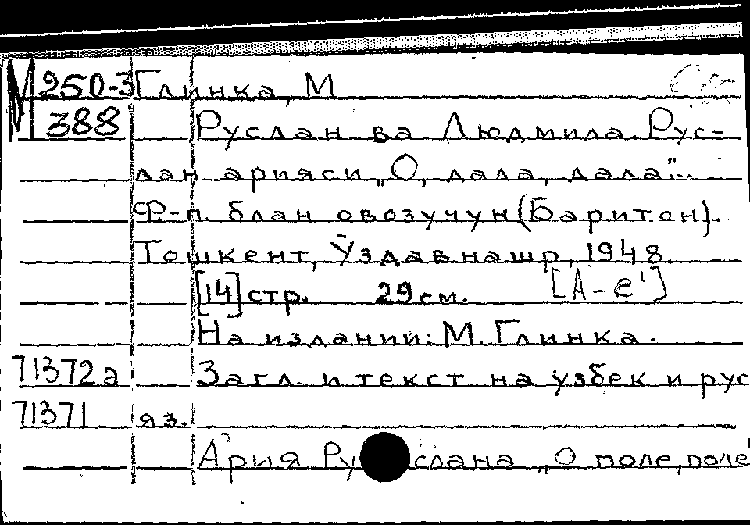 М 250-3 Глинка, М
388 Руслан ва Людмила. Рус-
лан арияси „О, дала, дала”..
Ф-п. блан овозучун (Баритон).
Тошкент, Ўздавнашр, 1948.
[14] стр. 29 см. [А-е']
На издании: М. Глинка.
71372а Загл. и текст на узбек и рус
71371 яз.
Ария Руслана „О поле, поле